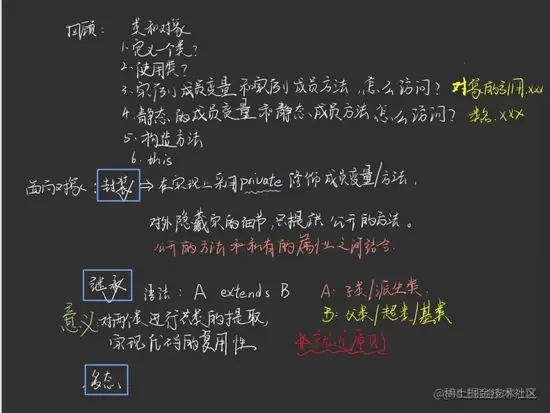 回顾： 类和对象
1.定义一个类？
2.使用类？
3.实例成员变量和实例成员方法，怎么访问？ 对象的引用.xxx
4.静态的成员变量和静态成员方法怎么访问？ 类名.xxx
5.构造方法
6.this
面向对象：封装 → 在实现上采用private修饰成员变量/方法，
对外隐藏实的细节，只提供公开的方法。
公开的方法和私有的属性之间结合
继承 语法：A extends B A：子类/派生类
意义：对两类进行共类的提取， B：父类/超类/基类
实现代码的复用性。 就近原则
多态：
@稀土掘金技术社区